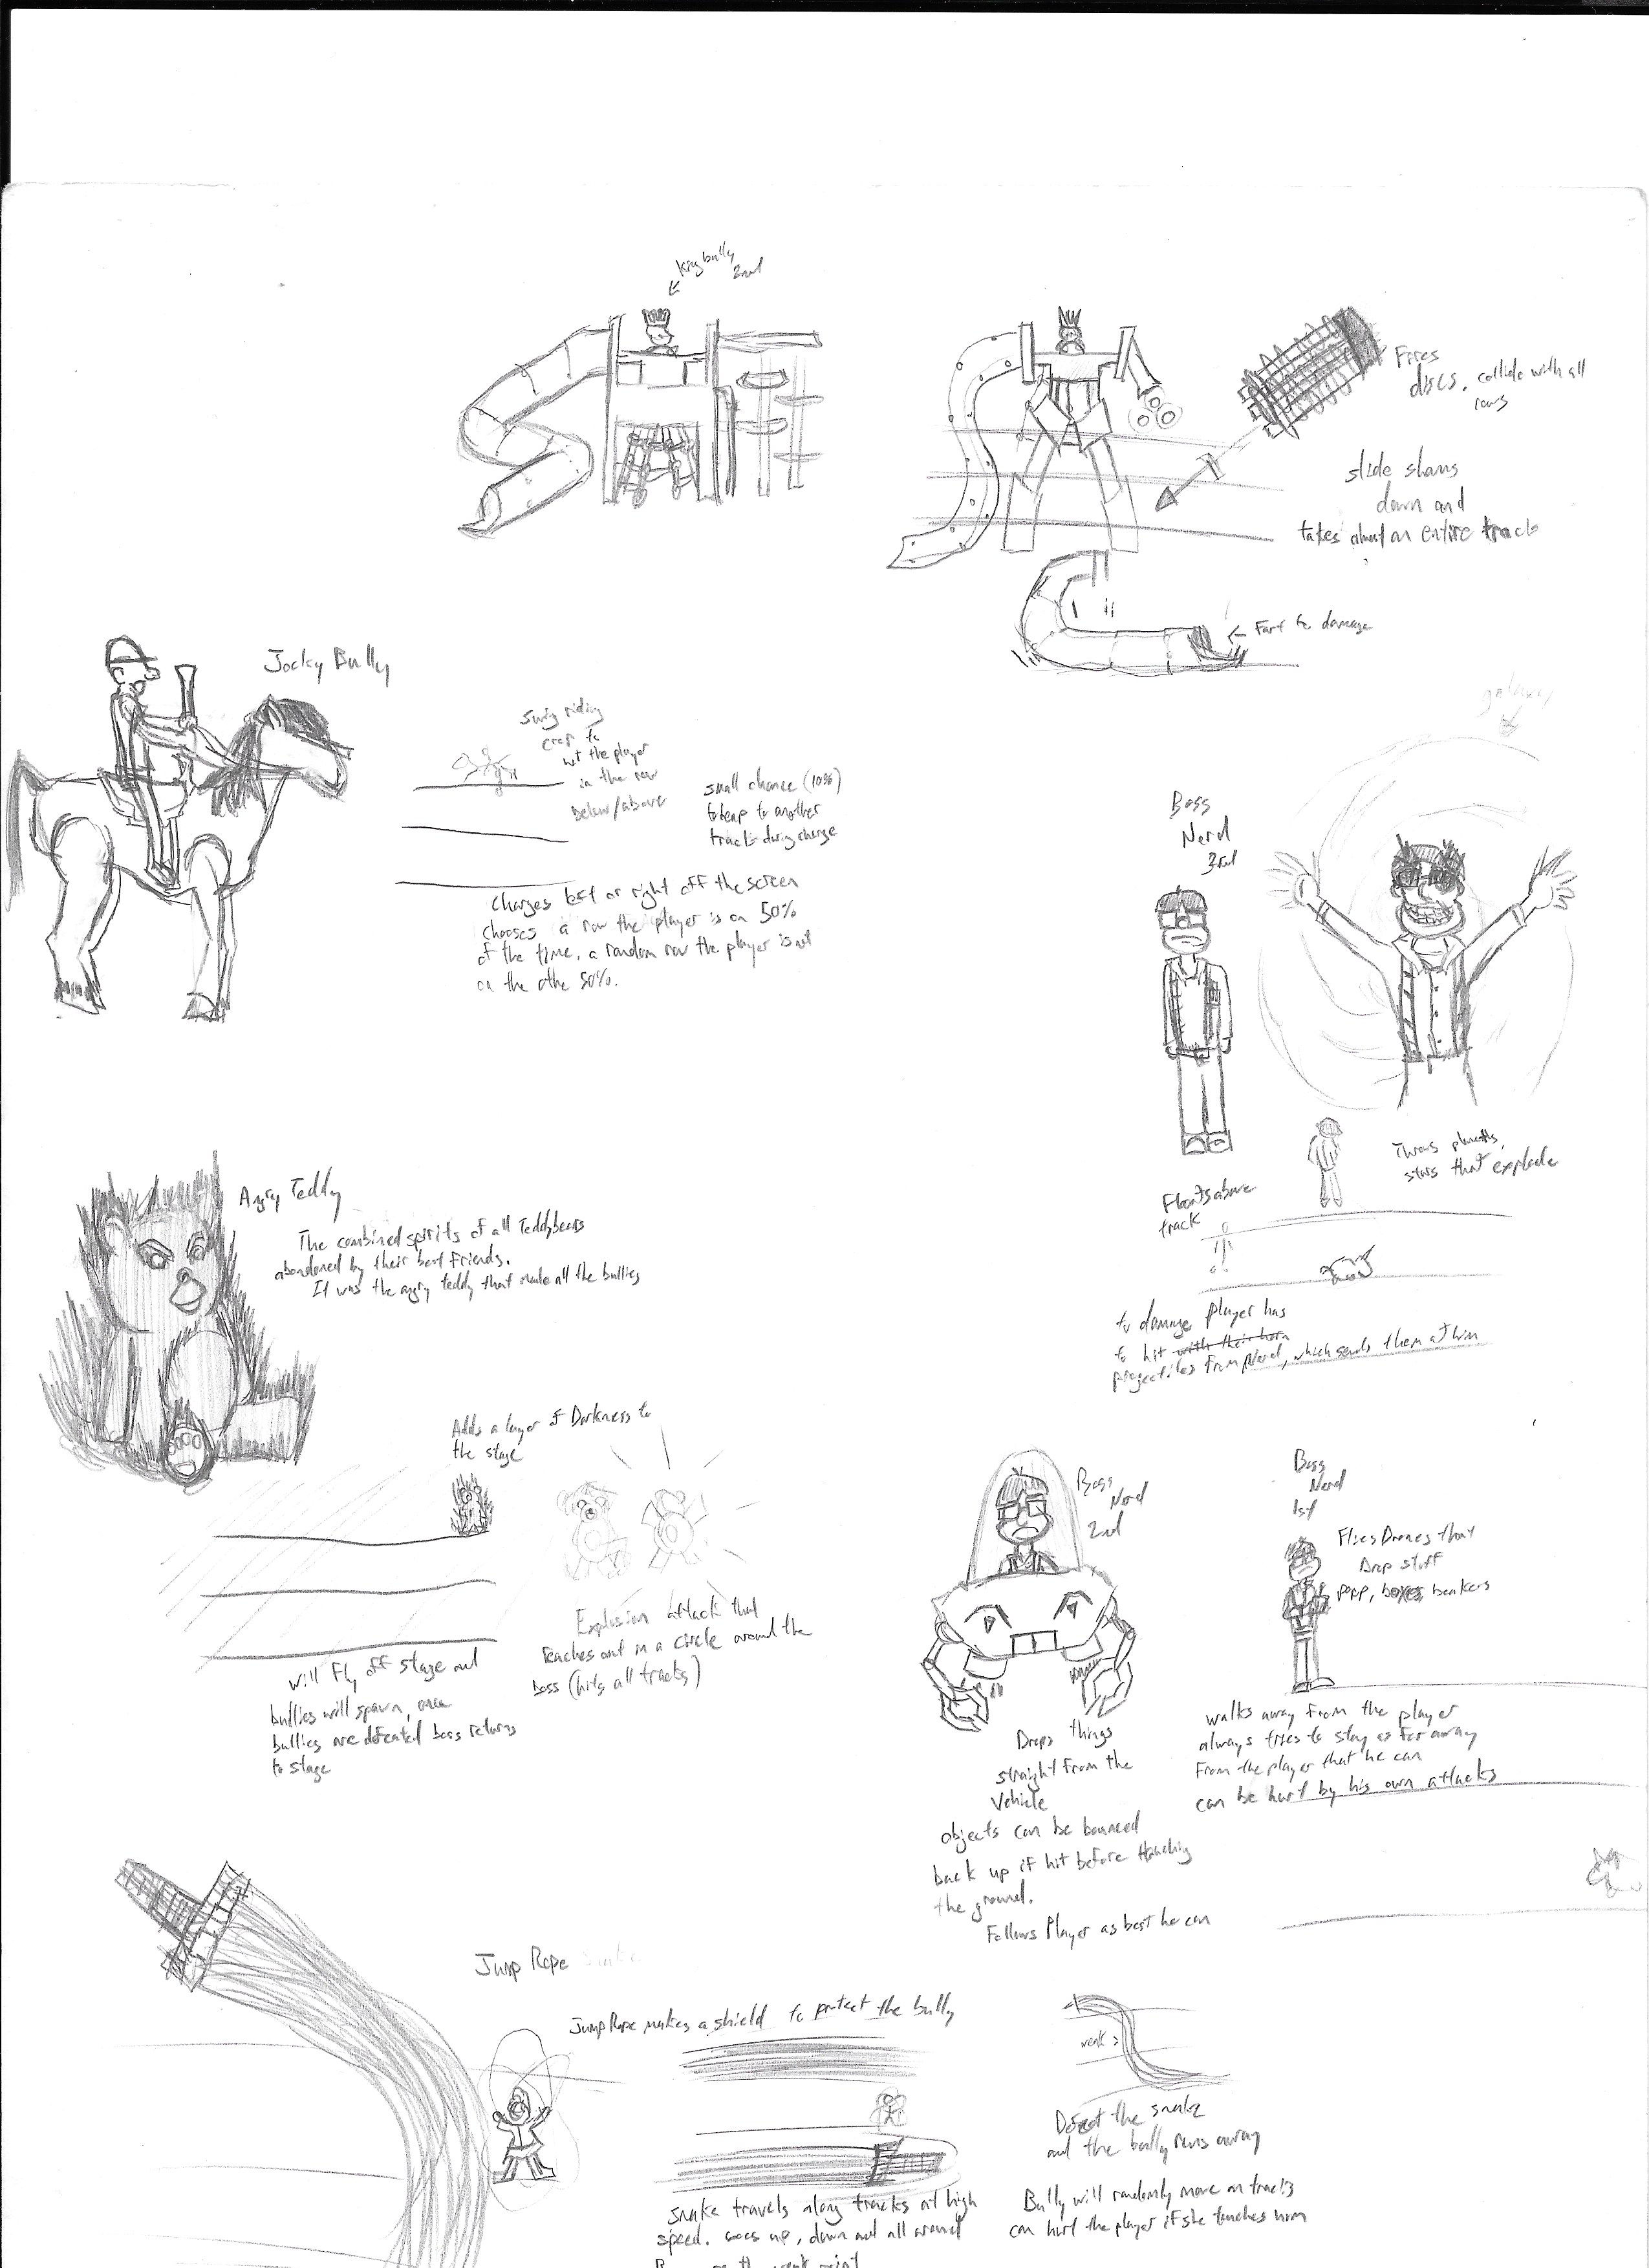 King bully
2nd
Fires
discs, collide with all
rows
slide slams
down and
takes almost an entire track
Fart to damage
Jocky Bully
Swing riding
crop to
hit the player
in the row
below/above
small chance (10%)
to leap to another
track during charge
Charges left or right off the screen
chooses a row the player is on 50%
of the time, a random row the player is not
on the othe 50%.
galaxy
Boss
Nerd
3rd
Throws planets,
stars that explode
Floats above
track
to damage player has
to hit with their horn
projectiles from Nerd, which sends them at him
Angry Teddy
The combined spirits of all Teddybears
abandoned by their best friends.
It was the angry teddy that made all the bullies
Adds a layer of Darkness to
the stage
Explosion attack that
Reaches out in a circle around the
boss (hits all tracks)
will fly off stage and
bullies will spawn, once
bullies are defeated boss returns
to stage
Boss
Nerd
2nd
Drops things
straight from the
Vehicle
objects can be bounced
back up if hit before touching
the ground.
Follows Player as best he can
Boss
Nerd
1st
Flies Drones that
Drop stuff
poop, boxes, beakers
walks away from the player
always tries to stay as far away
from the player that he can
can be hurt by his own attacks
Jump Rope Snake
Jump Rope makes a shield to protect the bully
weak >
Defeat the snake
and the bully runs away
Snake travels along tracks at high
speed. Goes up, down and all around
the weak point
Bully will randomly move on tracks
can hurt the player if she touches him